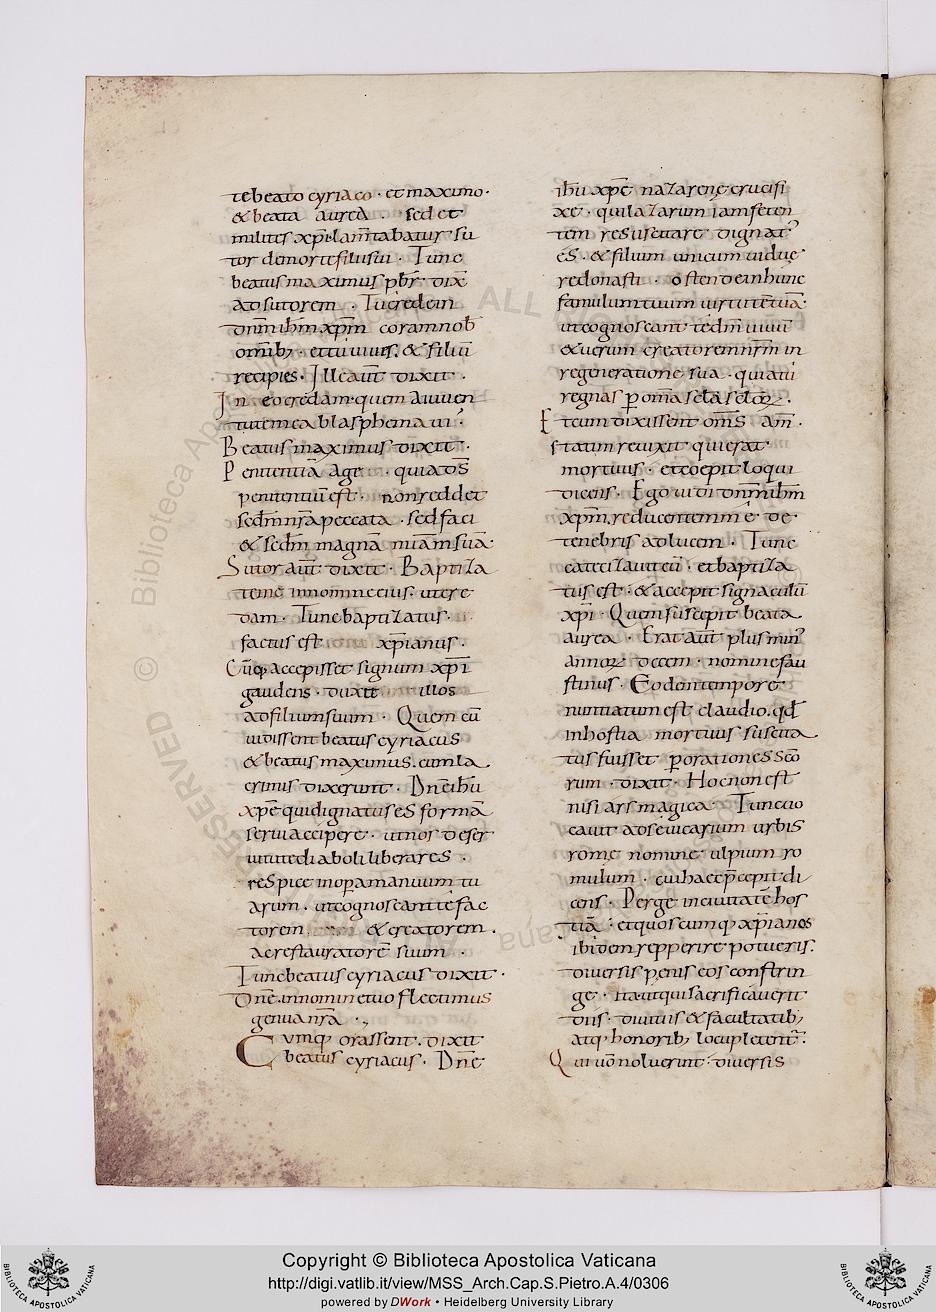 te beato cyriaco · et maximo ·
& beata aurea · sed et
milites xp̄i · lam̄tabatur su
tor de morte filii sui · Tunc
beatus maximus pb̄r dix̄
ad sutorem · Tu crede in
dn̄m ihm̄ xp̄m coram nob̄
omīb; · et tu vivis · & filiū
recipies · Ille aūt dixit ·
In eo credam quem a iuuen
tute mea blasphemavi ·
Beatus maximus dixit ·
Penitentiā age · quia d̄s
penitentiū est · non reddet
sed̄m nr̄a peccata · sed faci
& sed̄m magnā miām suā
Sutor aūt dixit · Baptiza
me in nomine eius · ut cre
dam · Tunc baptizatus ·
factus est xp̄ianus ·
Cūq; accepisset signum xp̄i
gaudens · duxit illos
ad filium suum · Quem cū
vidissent beatus cyriacus
& beatus maximus · cum la
crimis dixerunt · Dn̄e ihū
xp̄e qui dignatus es formā
servi accipere · ut nos de ser
vitute diaboli liberares ·
respice in opera manuum tu
arum · ut cognoscant te fac
torem & creatorem ·
ac restauratorē suum ·
Tunc beatus cyriacus dixit ·
Dn̄e in nomine tuo flectimus
genua nr̄a ·,
Cumq; orassent · dixit
beatus cyriacus · Dn̄e
ihū xp̄e nazarene crucifi
xe · qui lazarum iam feten
tem resuscitare dignat᾽
es · & filium unicum viduę
redonasti · ostende in hunc
famulum tuum virtutē tuā
ut cognoscant te dm̄ vivū
& verum creatorem nr̄m in
regeneratione sua · qui cum
regnas p omīa sc̄la sc̄loꝝ ·
Et cum dixissent om̄s am̄ ·
statum revixit qui erat
mortuus · et coepit loqui
dicens · Ego vidi dn̄m ihm̄
xp̄m · reducentem me de
tenebris ad lucem · Tunc
catecizavit eū · et baptiza
tus est · & accepit signaculū
xp̄i · Quem suscepit beata
aurea · Erat aūt plus min᾽
annoꝝ decem · nomine fau
stinus · Eodem tempore
nuntiatum est claudio · qđ
in hostia mortuus suscita
tus fuisset p orationes sc̄o
rum · dixit · Hoc non est
nisi ars magica · Tunc vo
cavit ad se vicarium urbis
romę nomine ulpium ro
mulum · cui hac p̄cepit di
cens · Perge in civitatē hos
tiā · et quoscumq; xp̄ianos
ibidem repperire potueris ·
diversis penis eos constrin
ge · ita ut qui sacrificaverit
diis · divitiis & facultatib;
atq; honorib; locupletent᾽ ·
Qui vō noluerint · diversis
© Biblioteca Apostolica Vaticana
ALL RIGHTS RESERVED
BIBLIOTECA APOSTOLICA VATICANA
Copyright © Biblioteca Apostolica Vaticana
http://digi.vatlib.it/view/MSS_Arch.Cap.S.Pietro.A.4/0306
powered by DWork • Heidelberg University Library
BIBLIOTECA APOSTOLICA VATICANA